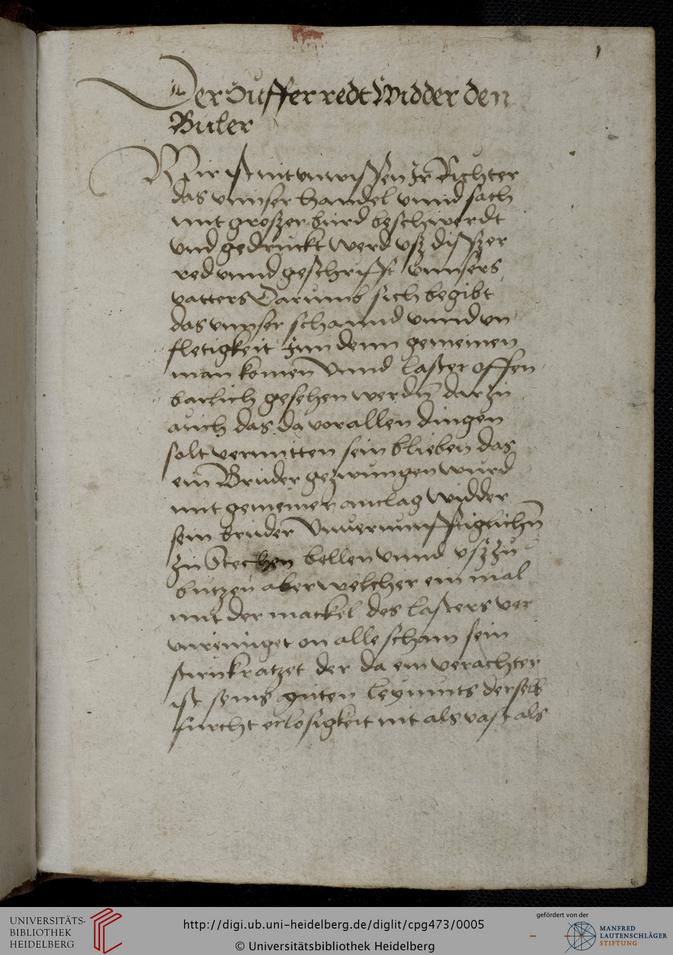 Der Suffer redt Widder den
Buler
Mir ist nit unwissen Ir Richter
das vnnser handel vnnd sach
mit groszer burd beschwerdt
vnd gedruckt werd vsz diszer
red vnnd geschrifft vnnsers
vatters Darumb sich begibt
das vnnser schannd vnnd vn
fletigkeit Inn denn gemeinen
man komen Vnnd laster offen
barlich gesehen werdn dar zu
auch das da vor allen dingen
solt vermitten sein blieben das
ein Bruder gezwungen wurd
mit gemeiner anclag widder
sein bruder Vnuernunfftiglichn
zu Stechen bellen vnnd vsz zu
butzen aber welcher ein mal
mit der mackel des lasters ver
vnreiniget on alle scham sein
stirn kratzet der da ein verachter
ist seins guten leymuts derselb
furcht erlosigkeit nit als vast als
1
UNIVERSITÄTS-
BIBLIOTHEK
HEIDELBERG
http://digi.ub.uni-heidelberg.de/diglit/cpg473/0005
© Universitätsbibliothek Heidelberg
gefördert von der
MANFRED
LAUTENSCHLÄGER
STIFTUNG